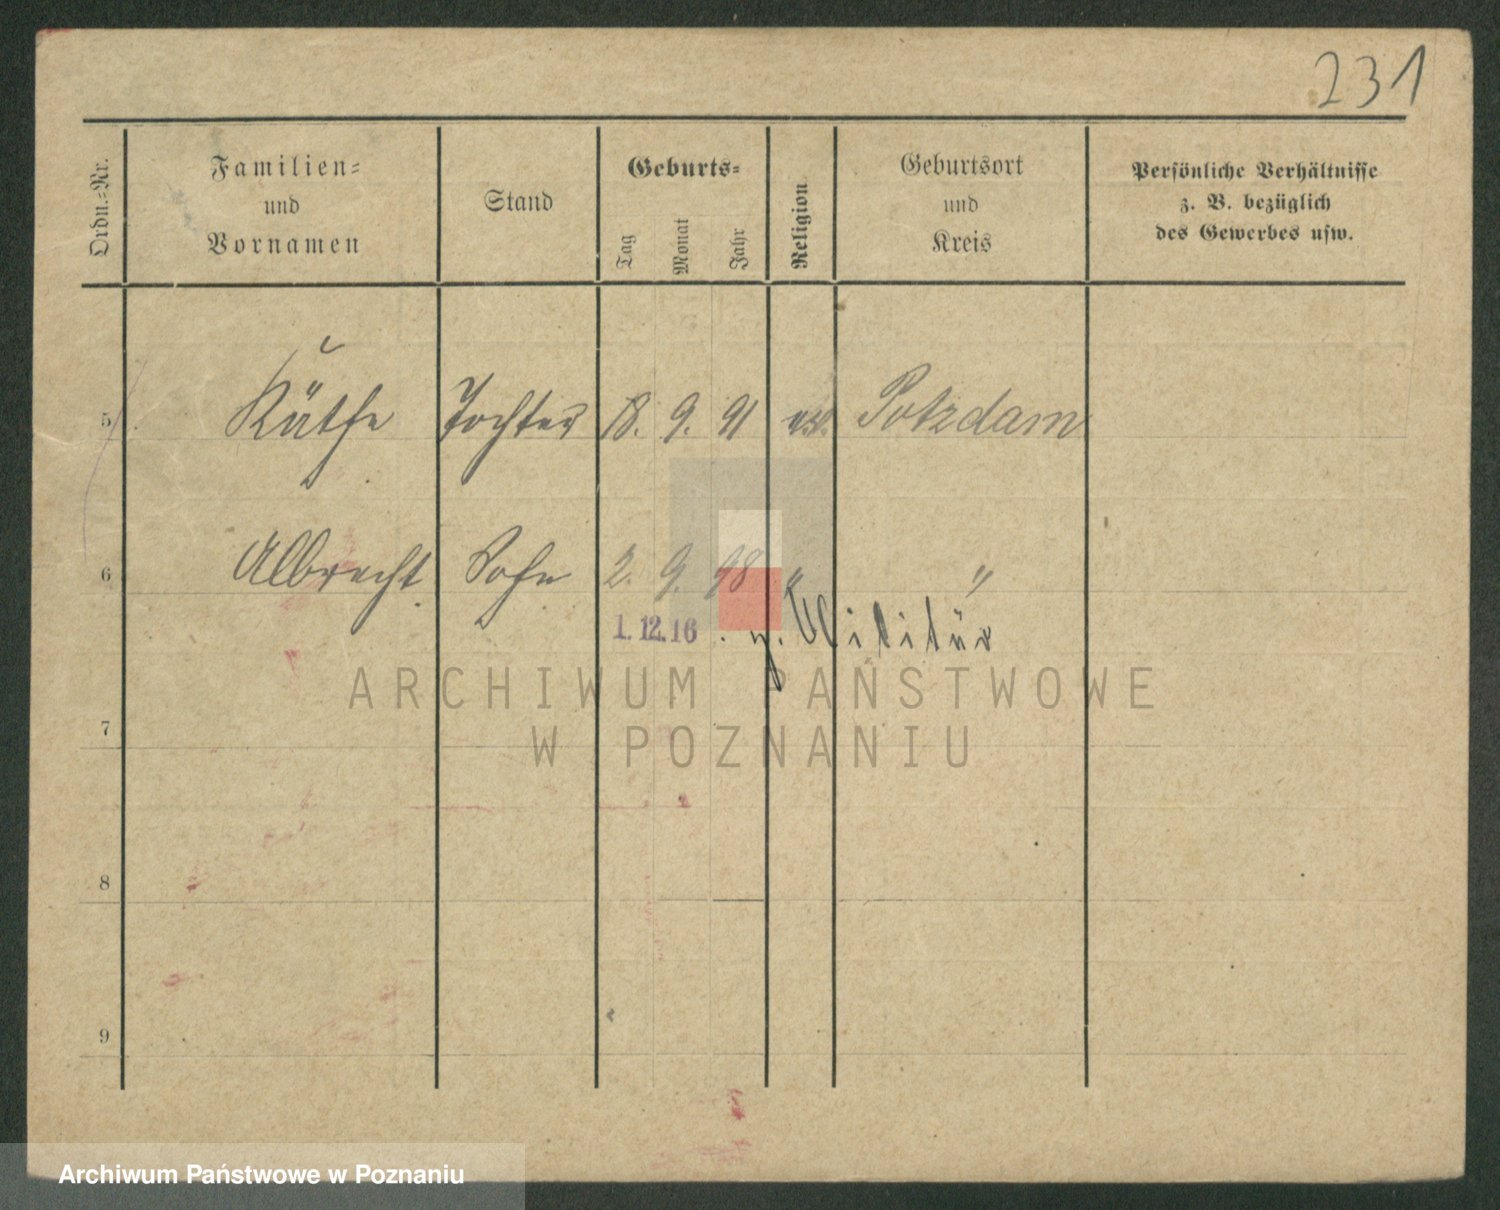 231
Ordn.=Nr.
Familien=
und
Vornamen
Stand
Geburts=
Tag
Monat
Jahr
Religion
Geburtsort
und
Kreis
Persönliche Verhältnisse
z. B. bezüglich
des Gewerbes usw.
5 Käthe Tochter 18. 9. 91 ev. Potzdam
6 Albrecht Sohn 2. 9. 98 " "
1. 12. 16 z. Militär
ARCHIWUM PAŃSTWOWE
W POZNANIU
7
8
9
Archiwum Państwowe w Poznaniu